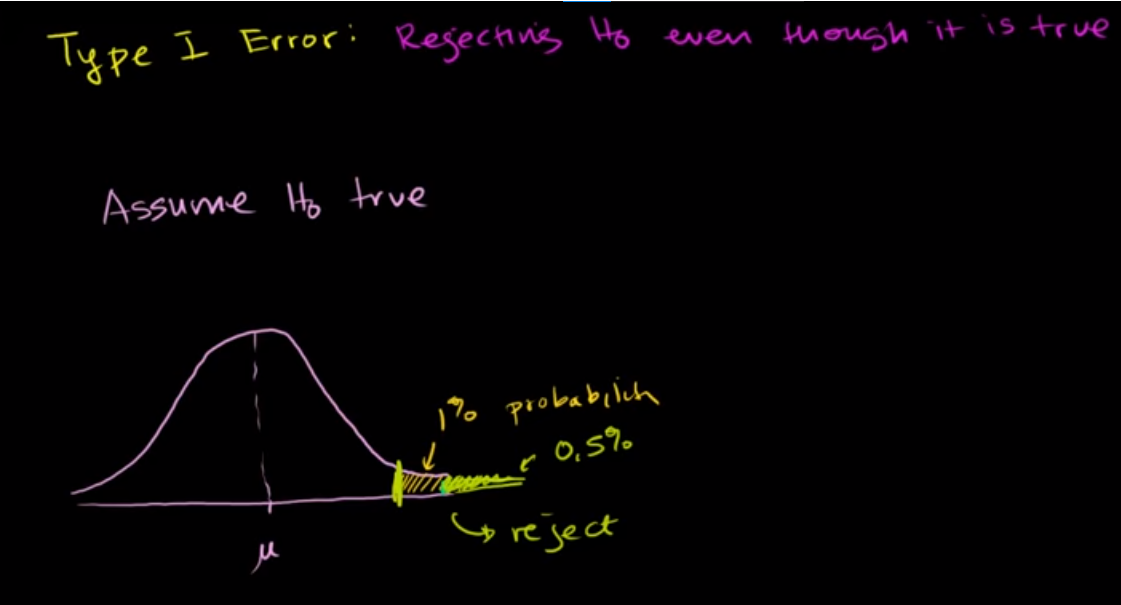 Type I Error: Rejecting H₀ even though it is true
Assume H₀ true
1% probability
0.5%
reject
μ